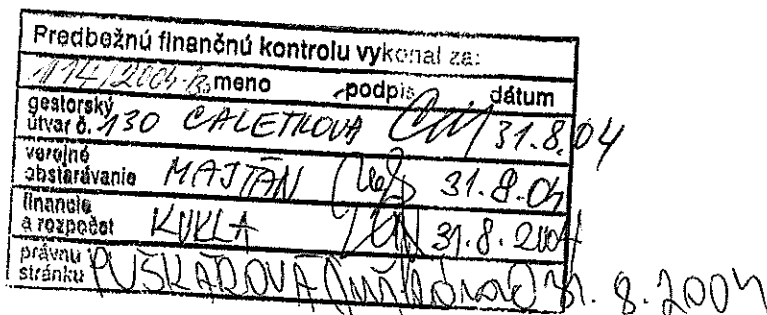 Predbežnú finančnú kontrolu vykonal za:
114/2004 meno podpis dátum
gestorský
útvar č. 130 CALETKOVA 31.8.04
verejné
obstarávanie MAJTÁN 31.8.04
financie
a rozpočet KUKLA 31.8.2004
právnu
stránku PUŠKÁROVÁ 31.8.2004